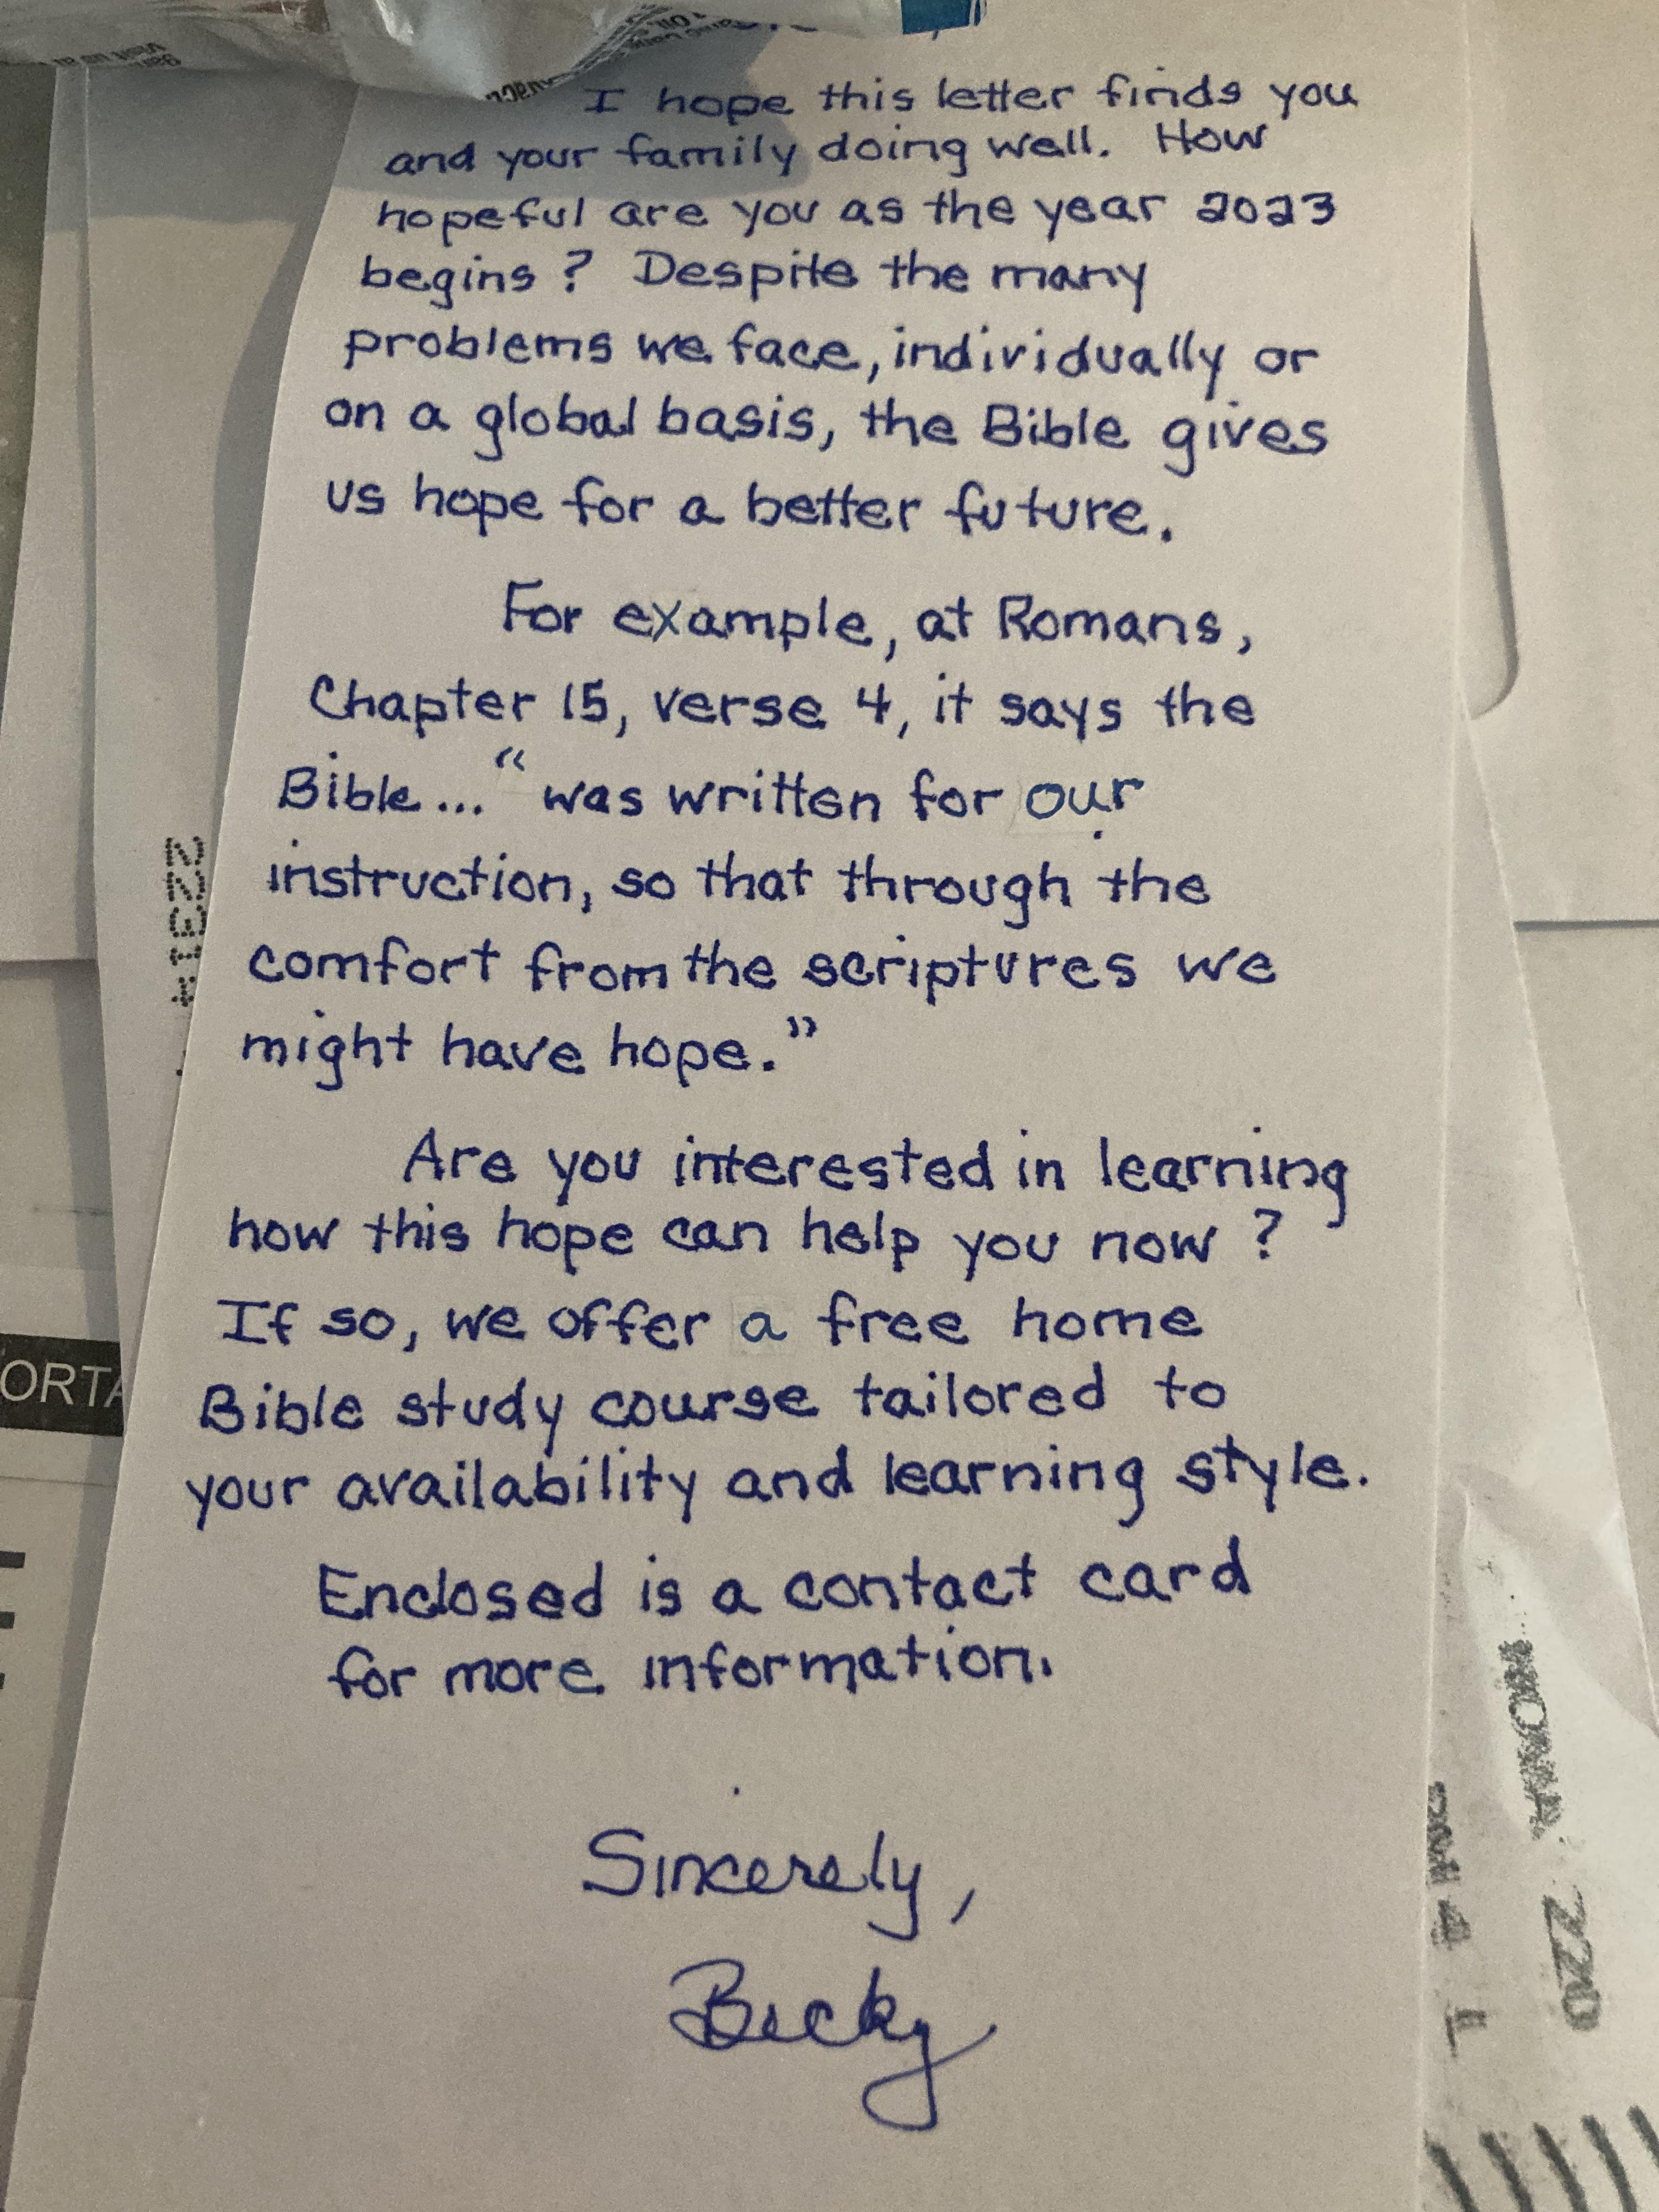 I hope this letter finds you
and your family doing well. How
hopeful are you as the year 2023
begins? Despite the many
problems we face, individually or
on a global basis, the Bible gives
us hope for a better future.
For example, at Romans,
Chapter 15, verse 4, it says the
Bible... "was written for our
instruction, so that through the
comfort from the scriptures we
might have hope."
Are you interested in learning
how this hope can help you now?
If so, we offer a free home
Bible study course tailored to
your availability and learning style.
Enclosed is a contact card
for more information.
Sincerely,
Becky
ORTA
220